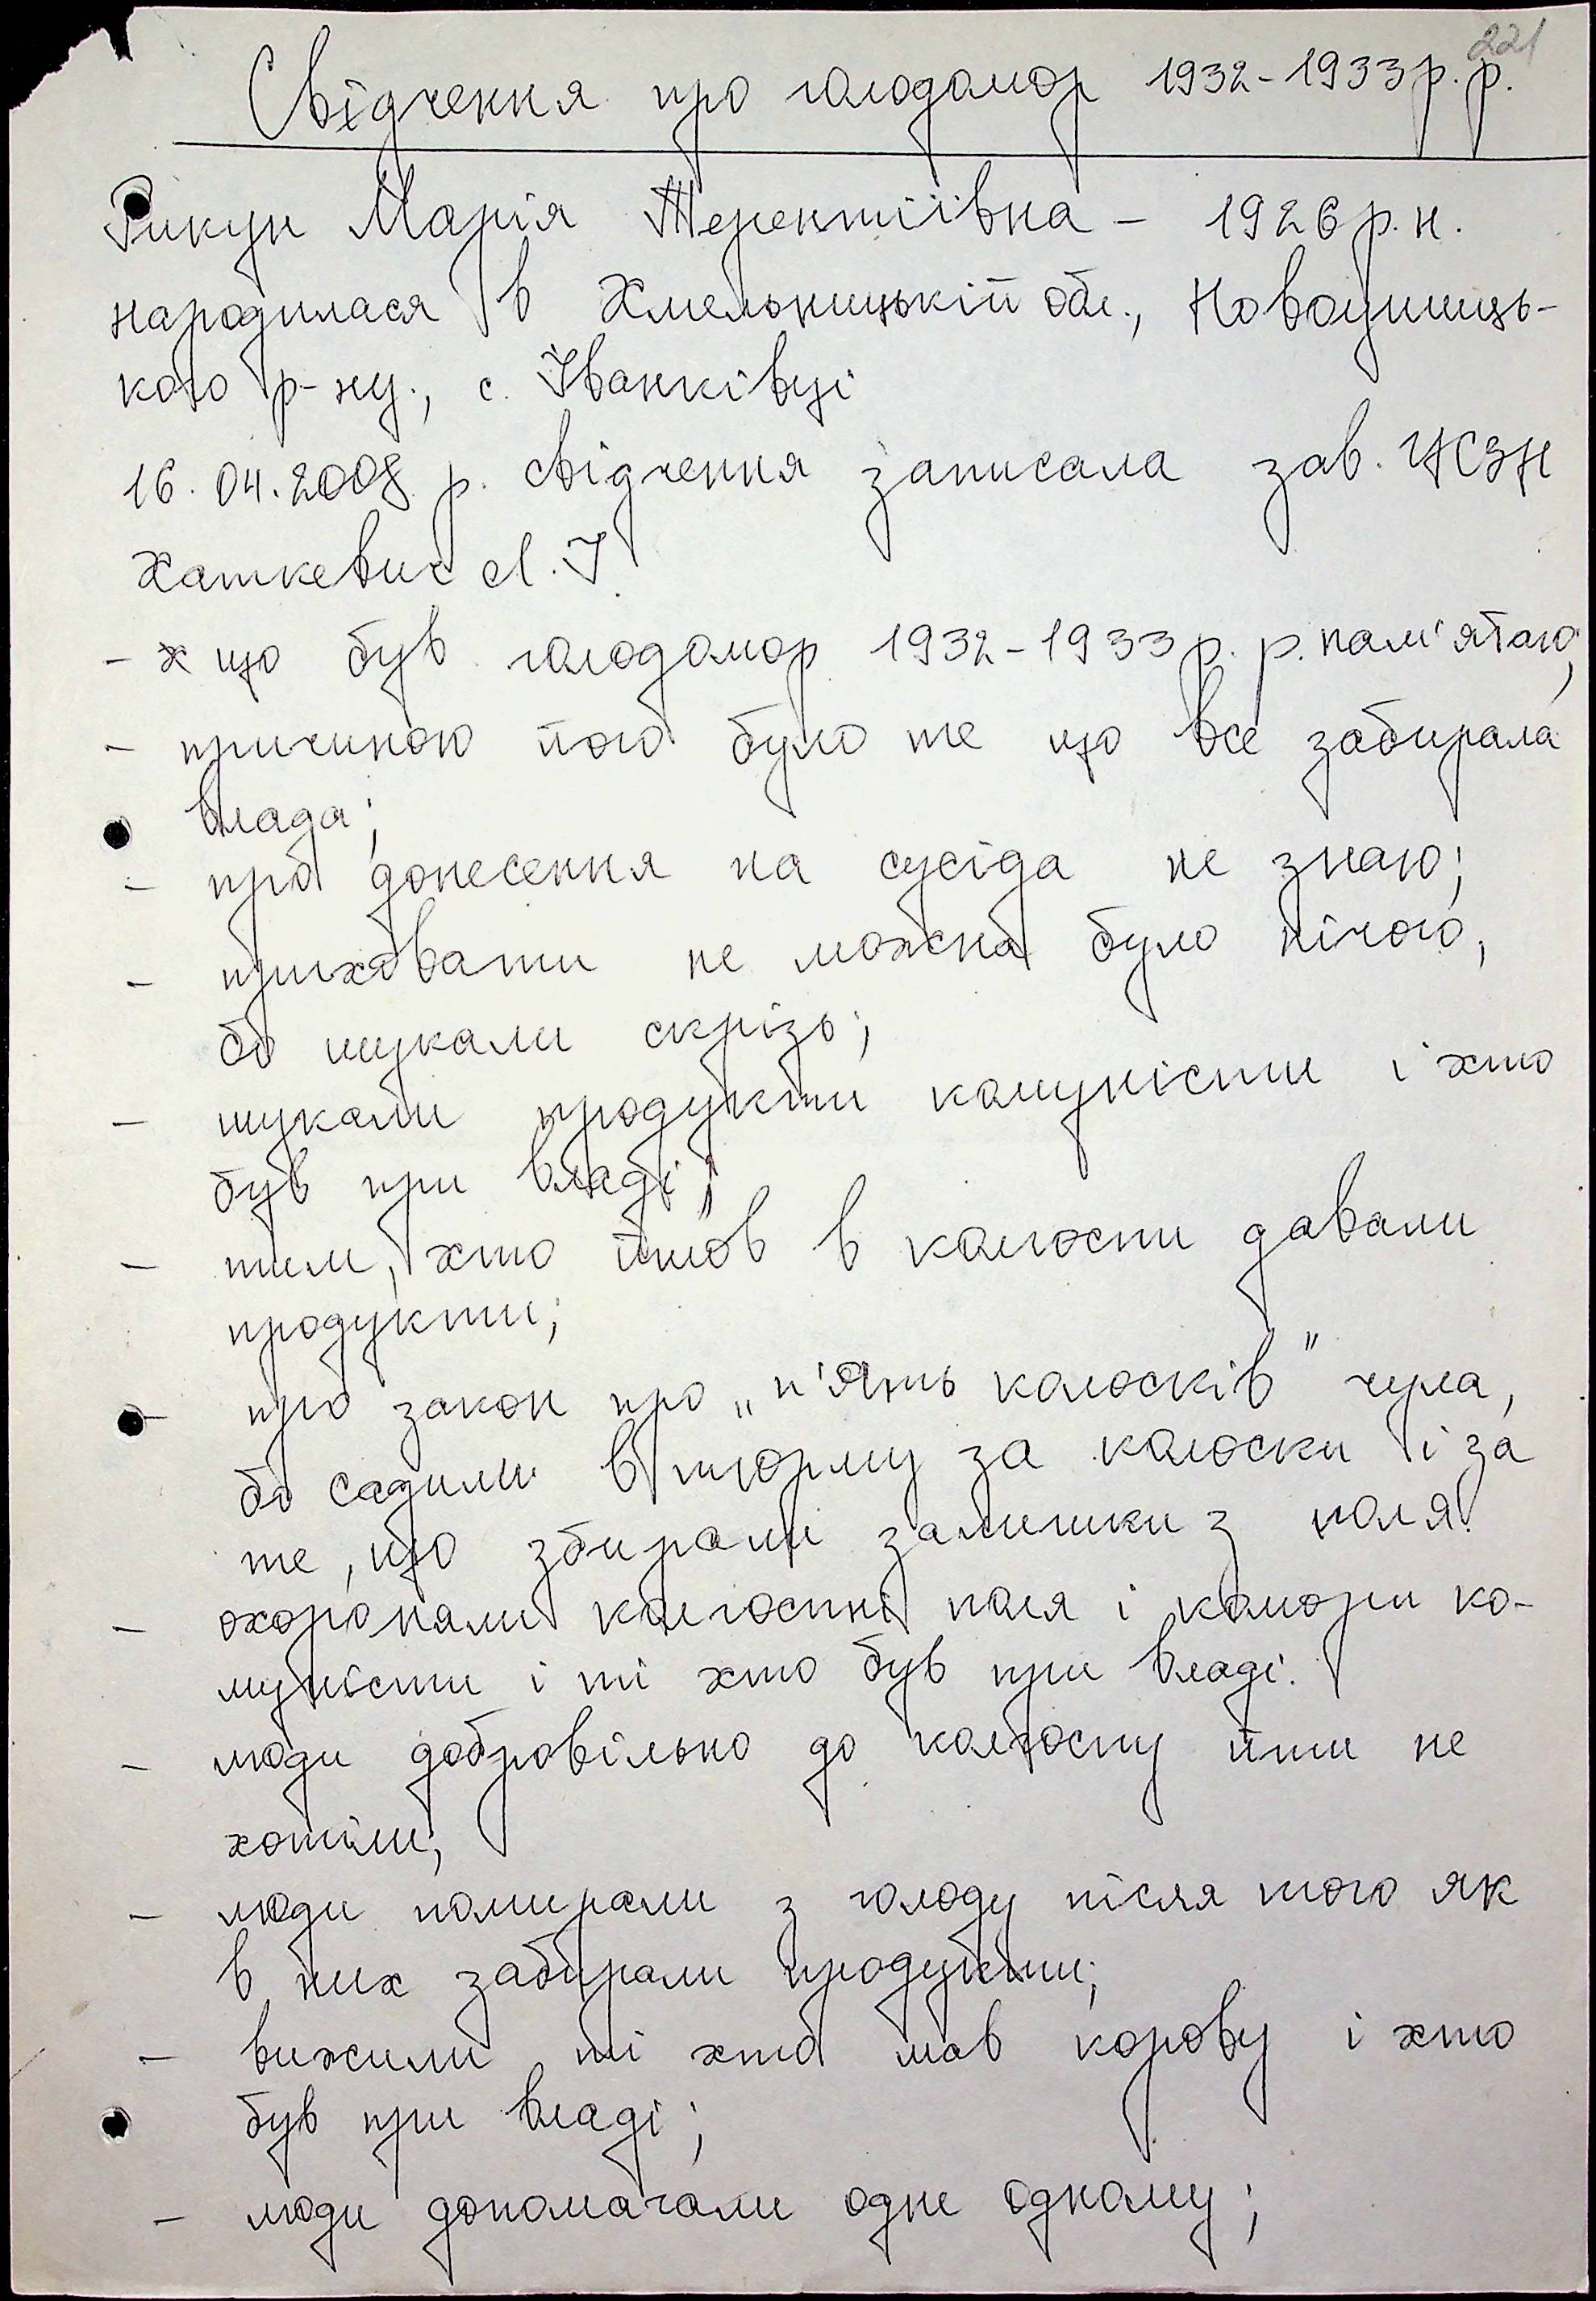 221
Свідчення про голодомор 1932-1933 р.р.
Рикун Марія Терентіївна - 1926 р.н.
народилася в Хмельницькій обл., Новоушиць-
кого р-ну., с. Іванківці
16.04.2008 р. свідчення записала зав. ЦСЗН
Хаткевич Л.І.
- х що був голодомор 1932-1933 р.р. пам'ятаю;
- причиною його було те що все забирала
влада;
- про донесення на сусіда не знаю;
- приховати не можна було нічого,
бо шукали скрізь;
- шукали продукти комуністи і хто
був при владі;
- тим, хто йшов в колгосп давали
продукти;
- про закон про „п'ять колосків" чула,
бо садили в тюрму за колоски і за
те, що збирали залишки з поля.
- охороняли колгоспні поля і комори ко-
муністи і ті хто був при владі.
- люди добровільно до колгоспу йти не
хотіли;
- люди помирали з голоду після того як
в них забирали продукти;
- вижили ті хто мав корову і хто
був при владі;
- люди допомагали одне одному;